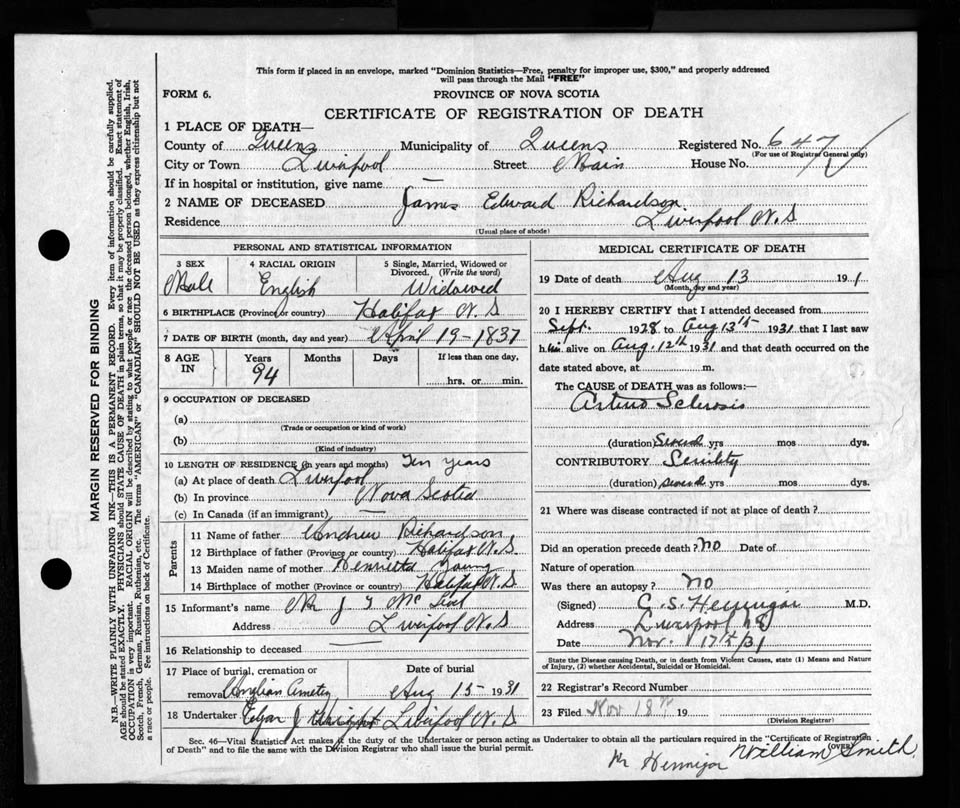 This form if placed in an envelope, marked "Dominion Statistics—Free, penalty for improper use, $300," and properly addressed
will pass through the Mail "FREE"
FORM 6.
PROVINCE OF NOVA SCOTIA
CERTIFICATE OF REGISTRATION OF DEATH
1 PLACE OF DEATH—
County of Queens Municipality of Queens Registered No. 647
(For use of Registrar General only)
City or Town Liverpool Street Main House No.
If in hospital or institution, give name —
2 NAME OF DECEASED James Edward Richardson
Residence Liverpool N.S
(Usual place of abode)
PERSONAL AND STATISTICAL INFORMATION
3 SEX
Male
4 RACIAL ORIGIN
English
5 Single, Married, Widowed or
Divorced. (Write the word)
Widowed
6 BIRTHPLACE (Province or country) Halifax N.S
7 DATE OF BIRTH (month, day and year) April 19-1837
8 AGE
IN
Years
94
Months
Days
If less than one day,
hrs. or min.
9 OCCUPATION OF DECEASED
(a)
(Trade or occupation or kind of work)
(b)
(Kind of industry)
10 LENGTH OF RESIDENCE (in years and months) Ten years
(a) At place of death Liverpool
(b) In province Nova Scotia
(c) In Canada (if an immigrant) —
Parents
11 Name of father Andrew Richardson
12 Birthplace of father (Province or country) Halifax N.S.
13 Maiden name of mother Henrietta Young
14 Birthplace of mother (Province or country) Halifax N.S
15 Informant's name Mr J
Address Liverpool N.S
16 Relationship to deceased
17 Place of burial, cremation or
removal
Date of burial
Aug 15- 1931
18 Undertaker J Liverpool N.S
MEDICAL CERTIFICATE OF DEATH
19 Date of death Aug 13 19 1
(Month, day and year)
20 I HEREBY CERTIFY that I attended deceased from
Sept. 1928 to Aug 13th 1931 that I last saw
him alive on Aug. 12th 1931 and that death occurred on the
date stated above, at m.
The CAUSE OF DEATH was as follows:—
Arterio Sclerosis
(duration) Several yrs mos dys.
CONTRIBUTORY Senility
(duration) several yrs mos dys.
21 Where was disease contracted if not at place of death?
Did an operation precede death? no Date of
Nature of operation
Was there an autopsy? no
(Signed) C.S. Hennigar M.D.
Address Liverpool N.S
Date Nov. 17th/31
State the Disease causing Death, or in death from Violent Causes, state (1) Means and Nature
of Injury, (2) whether Accidental, Suicidal or Homicidal.
22 Registrar's Record Number
23 Filed Nov 18th 19
(Division Registrar)
Sec. 46—Vital Statistics Act makes it the duty of the Undertaker or person acting as Undertaker to obtain all the particulars required in the "Certificate of Registration
of Death" and to file the same with the Division Registrar who shall issue the burial permit. (OVER)
William Smith
Hennigar
MARGIN RESERVED FOR BINDING
N.B.—WRITE PLAINLY WITH UNFADING INK—THIS IS A PERMANENT RECORD. Every item of information should be carefully supplied.
AGE should be stated EXACTLY. PHYSICIANS should STATE CAUSE OF DEATH in plain terms, so that it may be properly classified. Exact statement of
OCCUPATION is very important. RACIAL ORIGIN will be described by stating to what people or race the deceased person belonged, whether English, Irish,
Scotch, French, German, Russian, Ruthenian, etc. The terms "AMERICAN" or "CANADIAN" SHOULD NOT BE USED as they express citizenship but not
a race or people. See instructions on back of Certificate.